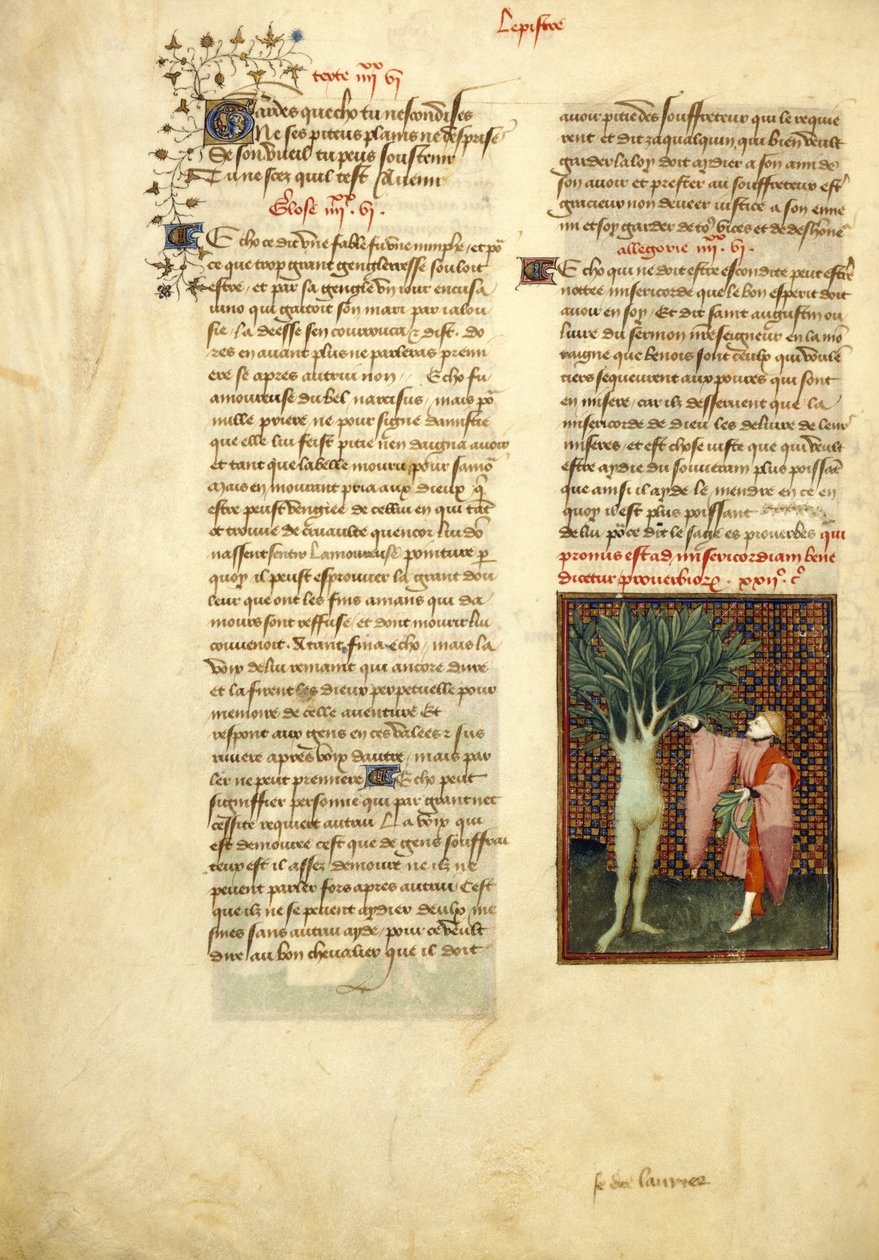 Lepistre
texte iiii xx vi
Gardes que echo tu nescondises
Ne ses piteus plains ne desprises
Se son vueil tu peus soustenir
Tu ne scez quil test a venir
Glose iiii xx. vi.
Echo ce dit vne fable fu vne nimphe, et po
ce que trop grant gengleresse souloit
estre, et par sa gengle vn iour encusa
iuno qui gaitoit son mari par ialou
sie, la deesse sen courrouca et dist. do
res en auant plus ne parleras premi
ere se apres autrui non, Echo fu
amoureuse du bel narcisus, mais po
nulle priere, ne pour signe damistie
que elle lui feist pitie nen daigna auoir
et tant que la belle mouru pour samo
Mais en mourant pria aux dieux q
estre peust vengiee de cellui en qui tat
et trouue de cruaulte quencor lui do
nassent sentir lamoureuse pointure p
quoy il peust esprouuer la grant dou
leur que ont les fins amans qui da
mours sont reffuse, et dont mourir lui
conuenoit. A tant fina echo, mais la
voix de lui remaint qui ancore dure
et la firent les dieux perpetuelle pour
memoire de celle auenture Et
respont aux gens en ces valees et sus
riuiere apres voix dautre, mais par
ler ne peut premiere Echo peut
signiffier personne qui par grant nec
cessite requiert autrui La voix qui
est demouree cest que de gens souffrai
teux est il assez demoure ne ilz ne
peuent parler fors apres autrui Cest
que ilz ne se peuent aydier deulx me
smes sans autrui ayde, pour ce veult
dire au bon cheualier que il doit
auoir pitie des souffreteux qui le requie
rent et dit zaqualquin, qui bien veult
garder la loy doit aydier a son ami de
son auoir et prester au souffreteux estre
gracieux non deueer iustice a son enne
mi et soy garder de to vices et de deshonne
allegorie iiii xx. vi.
Echo qui ne doit estre escondite peut estre
nottee misericorde que le bon esperit doit
auoir en soy, Et dit saint augustin ou
liure du sermon nre seigneur en la mo
taigne que benois sont ceulx qui voule
tiers sequeurent aux poures qui sont
en misere, car ilz desseruent que la
misericorde de dieu les deliure de leurs
miseres, et est chose iuste que qui veult
estre aydie du souuerain plus poissat
que ainsi il ayde le mendre en ce en
quoy il est plus poissant
de lui po ce dit le sage es prouerbes qui
promus est ad misericordiam bene
dicetur prouerbiorz. xxiio. co
fe de laurier